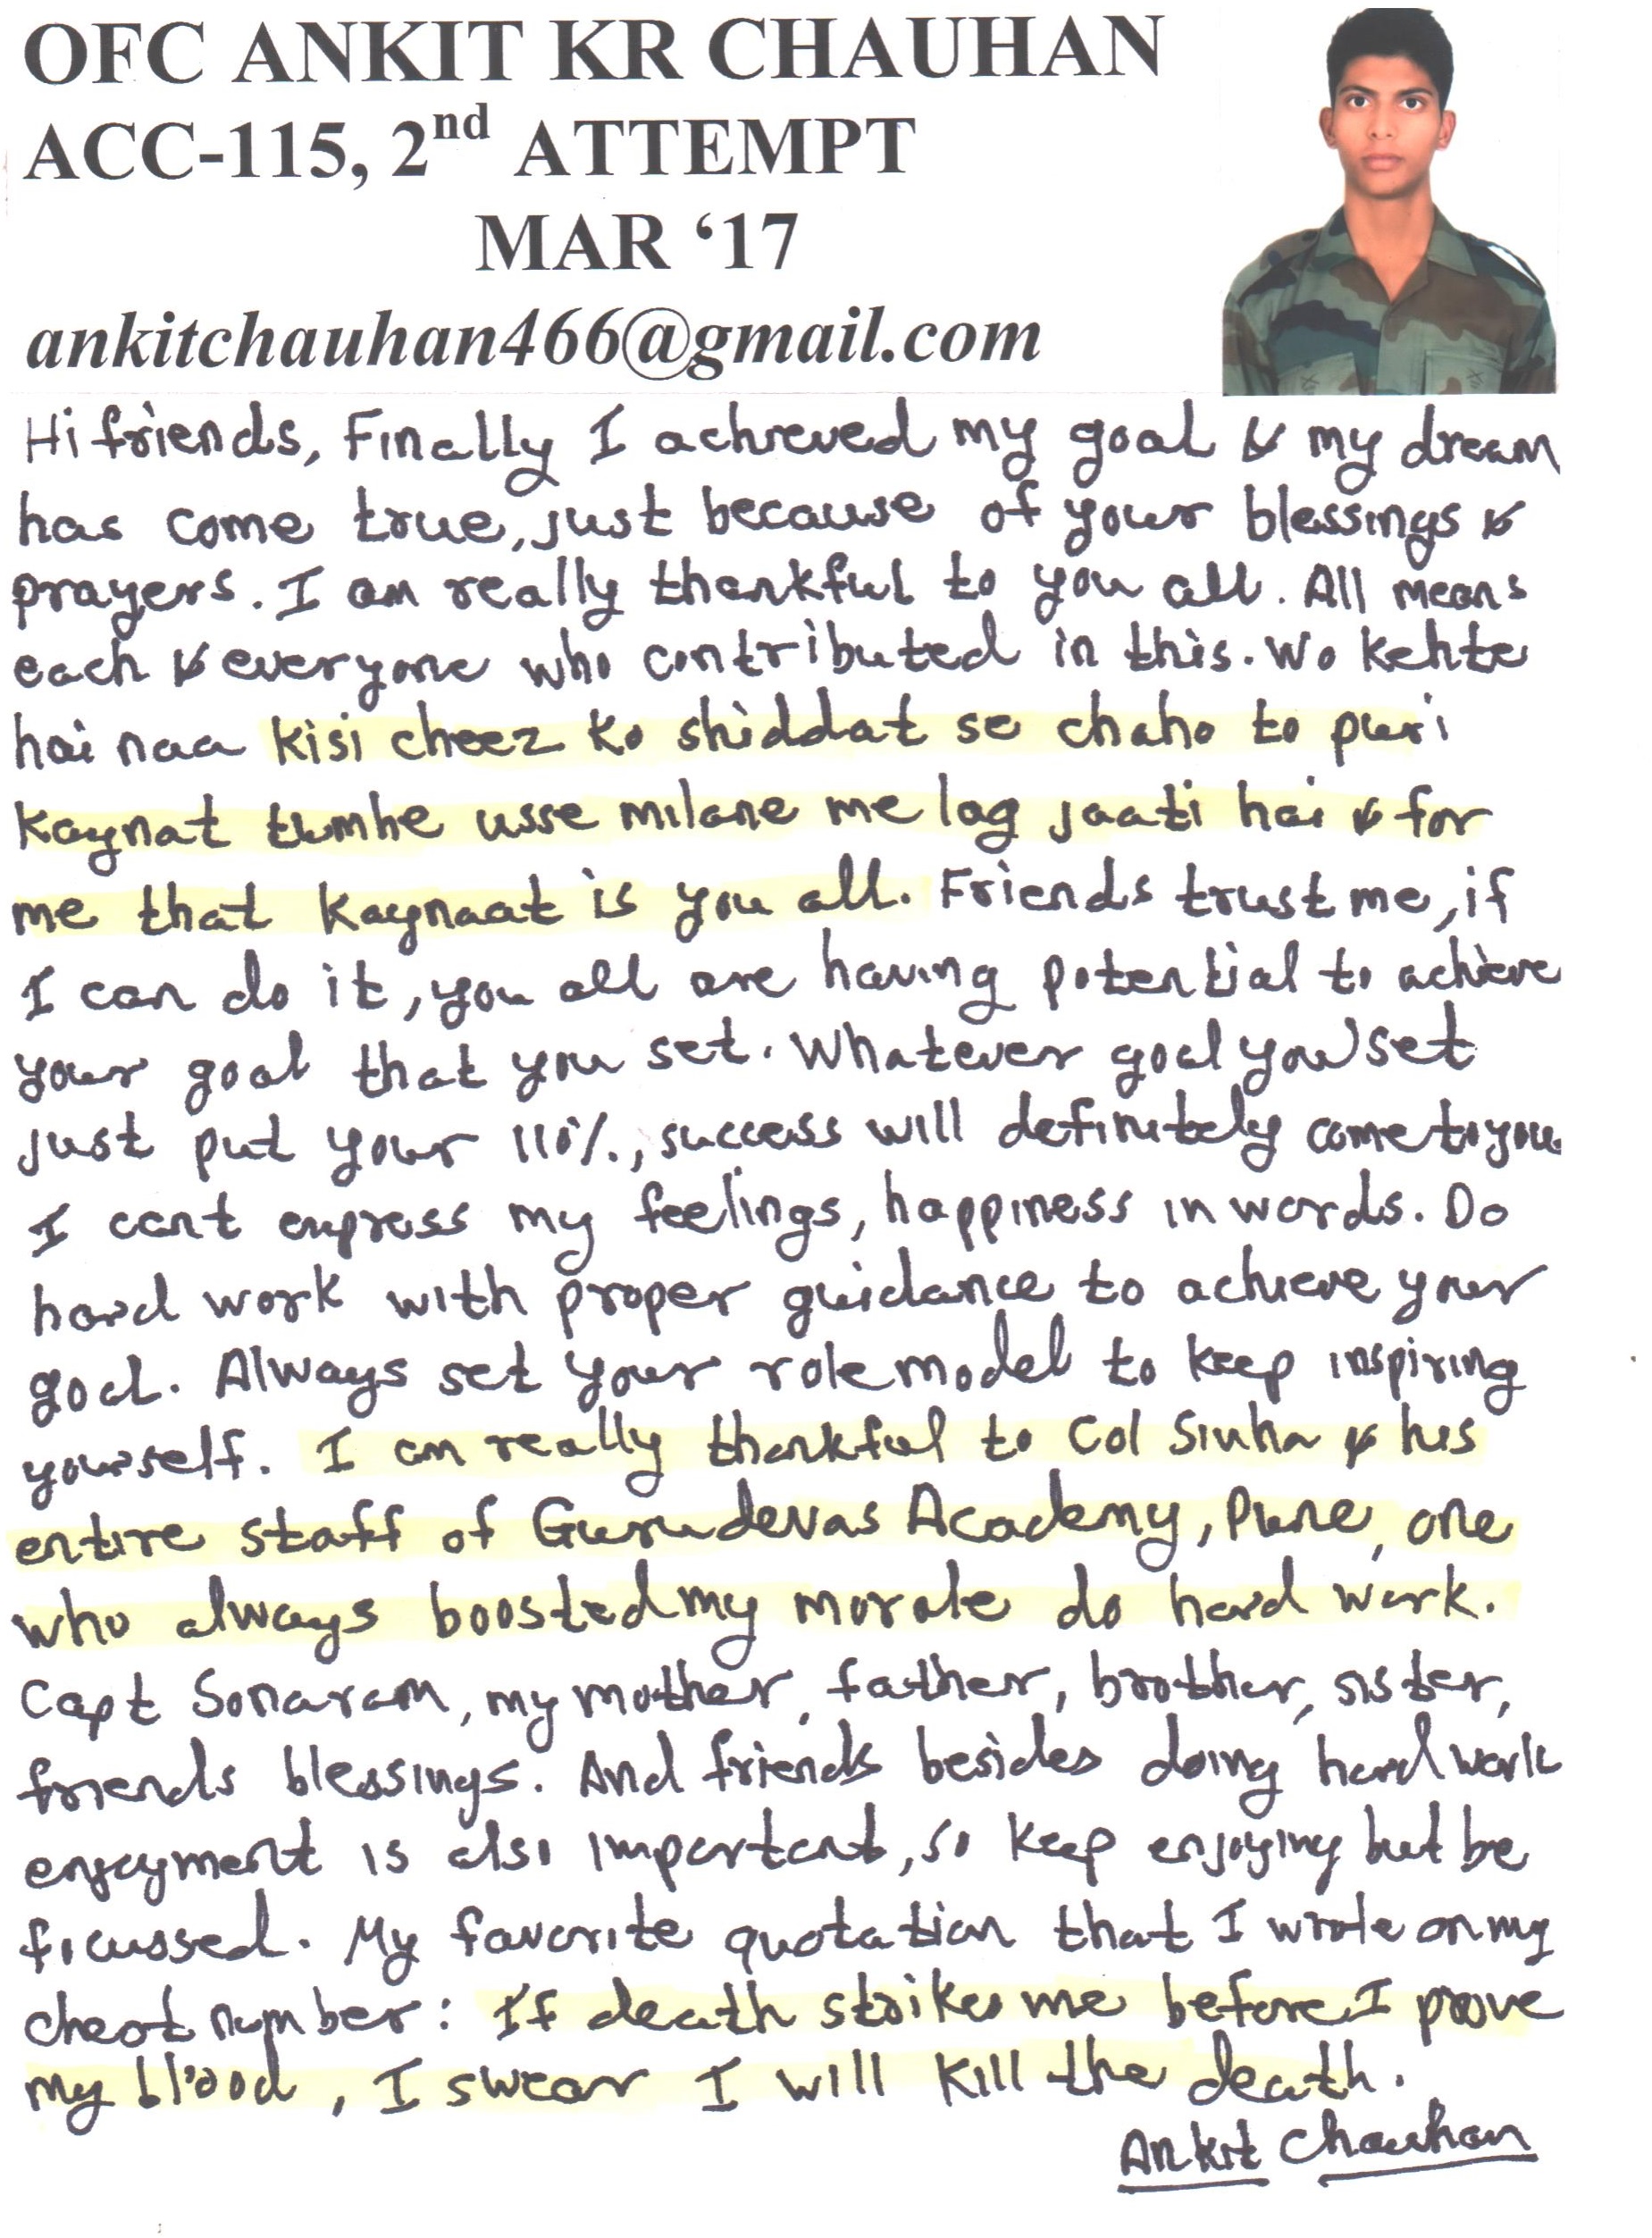 OFC ANKIT KR CHAUHAN
ACC-115, 2nd ATTEMPT
MAR ‘17
ankitchauhan466@gmail.com
Hi friends, Finally I achieved my goal & my dream
has come true, just because of your blessings &
prayers. I am really thankful to you all. All means
each & everyone who contributed in this. Wo kehte
hai naa kisi cheez ko shiddat se chaho to puri
kaynat tumhe usse milane me lag jaati hai & for
me that kaynaat is you all. Friends trust me, if
I can do it, you all are having potential to achieve
your goal that you set. Whatever goal you set
just put your 110%, success will definitely come to you
I cant express my feelings, happiness in words. Do
hard work with proper guidance to achieve your
goal. Always set your role model to keep inspiring
yourself. I am really thankful to Col Sinha & his
entire staff of Gurudevas Academy, Pune, one
who always boosted my morale do hard work.
Capt Sonaram, my mother, father, brother, sister,
friends blessings. And friends besides doing hard work
enjoyment is also important, so keep enjoying but be
focussed. My favorite quotation that I wrote on my
chest number: If death strikes me before I prove
my blood, I swear I will kill the death.
Ankit Chauhan